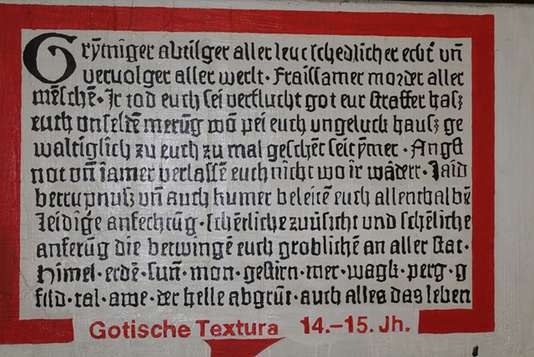 Grÿmiger abtilger aller leut schedlicher echt̄ un̄
veruolger aller werlt · Fraissamer morder aller
mēschē · Ir tod euch sei verflucht got eur straffer hasz
euch vnseldē merūg wō pei euch vngeluck hausz ge
waltiglich zu euch zu mal geschēt seit ÿmer · Angst
not vn̄ iamer verlassē euch nicht wo ir wādert · Laid
betrupnusz vn̄ auch kumer beleitē euch allenthalbē
leidige anfechtūg · schērliche zuuūsicht vnd schēliche
anferūg die betwingē euch groblichē an aller stat ·
Himel · erdē · sun̄ · mon · gestirn · mer · wagk · perg · g
fild · tal · awe · der helle abgrūt · auch alles das leben
Gotische Textura 14.–15. Jh.